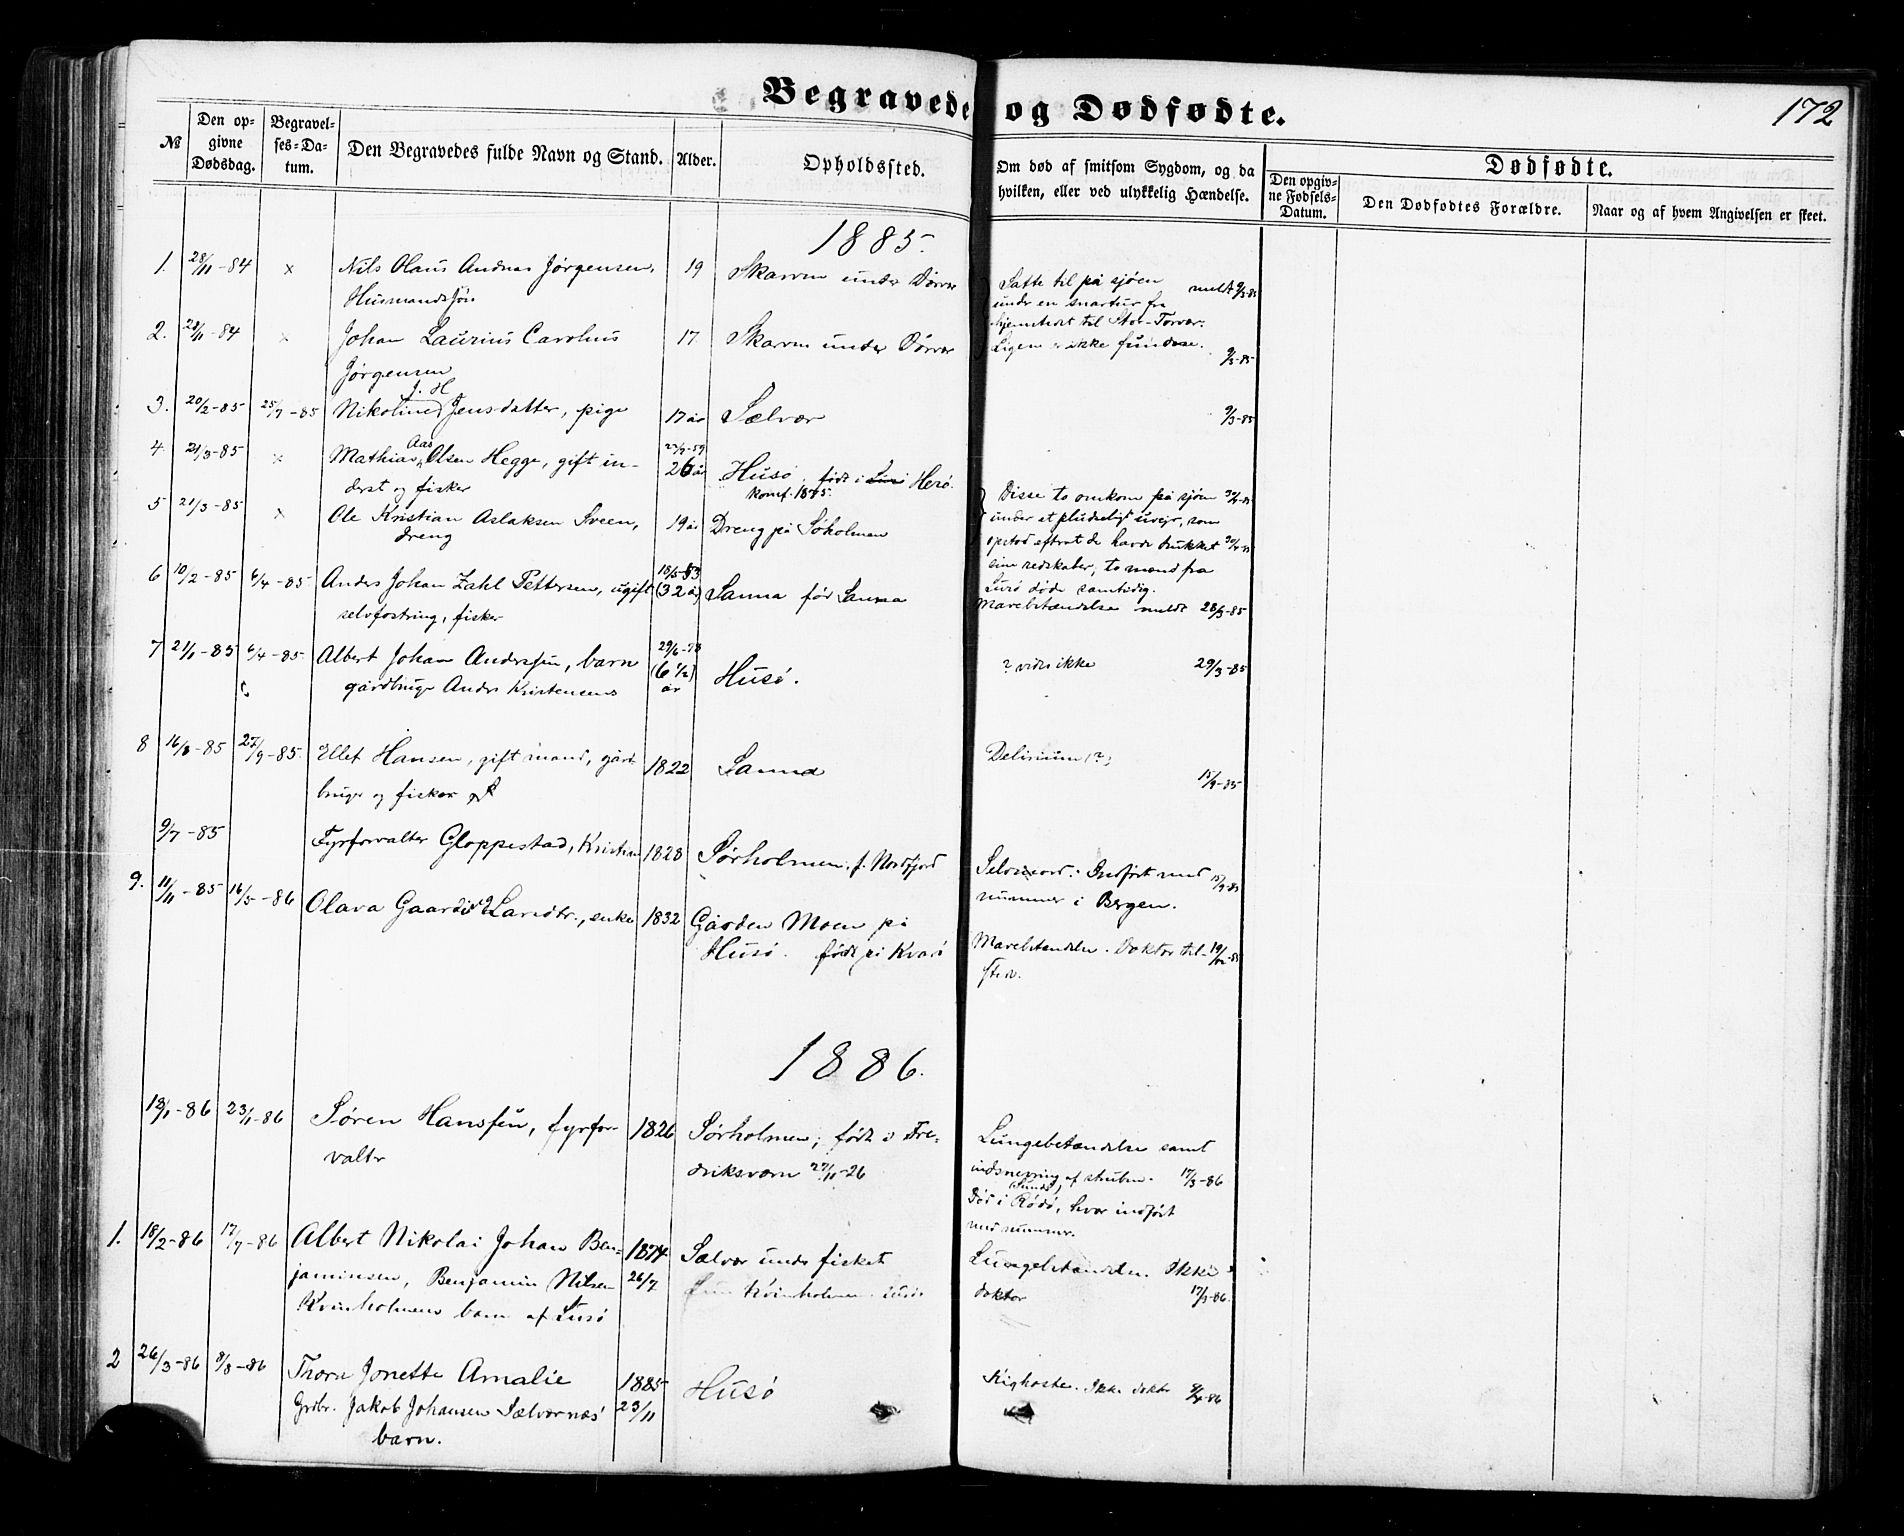 Begravede og Dødfødte.
172
№
Den opgivne Dødsdag.
Begravelses-Datum.
Den Begravedes fulde Navn og Stand.
Alder.
Opholdssted.
Om død af smitsom Sygdom, og da hvilken, eller ved ulykkelig Hændelse.
Dødfødte.
Den opgivne Fødsels-Datum.
Den Dødfødtes Forældre.
Naar og af hvem Angivelsen er skeet.
1885.
1. 28/11-84 × Nils Olaus Andreas Jørgensen, 19 Skarven under Dørvær
Husmandssøn
Satte til på sjøen meldt 9/3-85
under en snartur fra
hjemstedet til Stor-Torvær.
Ligene er ikke fundne. 9/3-85
2. 28/11-84 × Johan Laurius Carolius 17 Skarven under Dørvær
Jørgensen
3. 20/2-85 25/7-85 Nikoline J. H. Jensdatter, pige 17 år Sælvær 9/3-85
4. 21/3-85 × Mathias Aas Olsen Hegge, gift in- 26 år Husø, født i Herø.
derst og fisker konf. 1875.
5 21/3-85 × Ole Kristian Aslaksen Sveen, 19 år Dreng på Søholmen
dreng
Disse to omkom på sjøen
under et pludseligt uvejr, som
opstod efterat de havde trukket
sine redskaber; to mænd fra
Lurø døde samtidig.
6 10/2-85 6/4-85 Anders Johan Zahl Pettersen, ugift 18/5-53 (32 år) Sanna fød Sanna
selvfostring, fisker
Mavebetændelse meldt 28/3-85
7 21/1-85 6/4-85. Albert Johan Anderssen, barn 29/6-78 (6 1/2) år Husø.
gårdbruge Anders Kristensens
? vides ikke 29/3-85
8 16/8-85 27/9-85. Ellet Hansen, gift mand, gård- 1822 Sanna
bruger og fisker
Delirium (?)
15/9-85
9/7-85 Fyrforvalter Gloppestad, Kristian 1828 Sørholmen. f. Nordfjord
Selvmord. Indført med 15/9-85
nummer i Bergen.
9. 11/11-85 16/5-86 Olava Gaardsted Larsdtr., enke 1832 Gården Moen på
Husø. født på Kvarø
Mavebetændelse. Doktor til-
sted.
1886.
12/1-86 23/1-86 Søren Hanssen, fyrfor- 1826 Sørholmen, født i Fre-
valter driksværn 27/11-26
Lungebetændelse samt
indsnevring af struben. 17/3-86
Død i Sundø, Rødø, hvor indført
med nummer.
1. 18/2-86 17/7-86 Albert Nikolai Johan Ben- 1874 Sælvær under fisket
jaminsen, Benjamin Nilsen 26/7
Kvinholmens barn af Lurø
Lungebetændelse. Ikke
doktor 17/3-86.
2 26/3-86 8/8-86 Thora Jonette Amalie 1885 Husø
Grdbr. Jakob Johansen Sælvørnæs 23/11
barn.
Kighoste. Ikke doktor 9/4-86